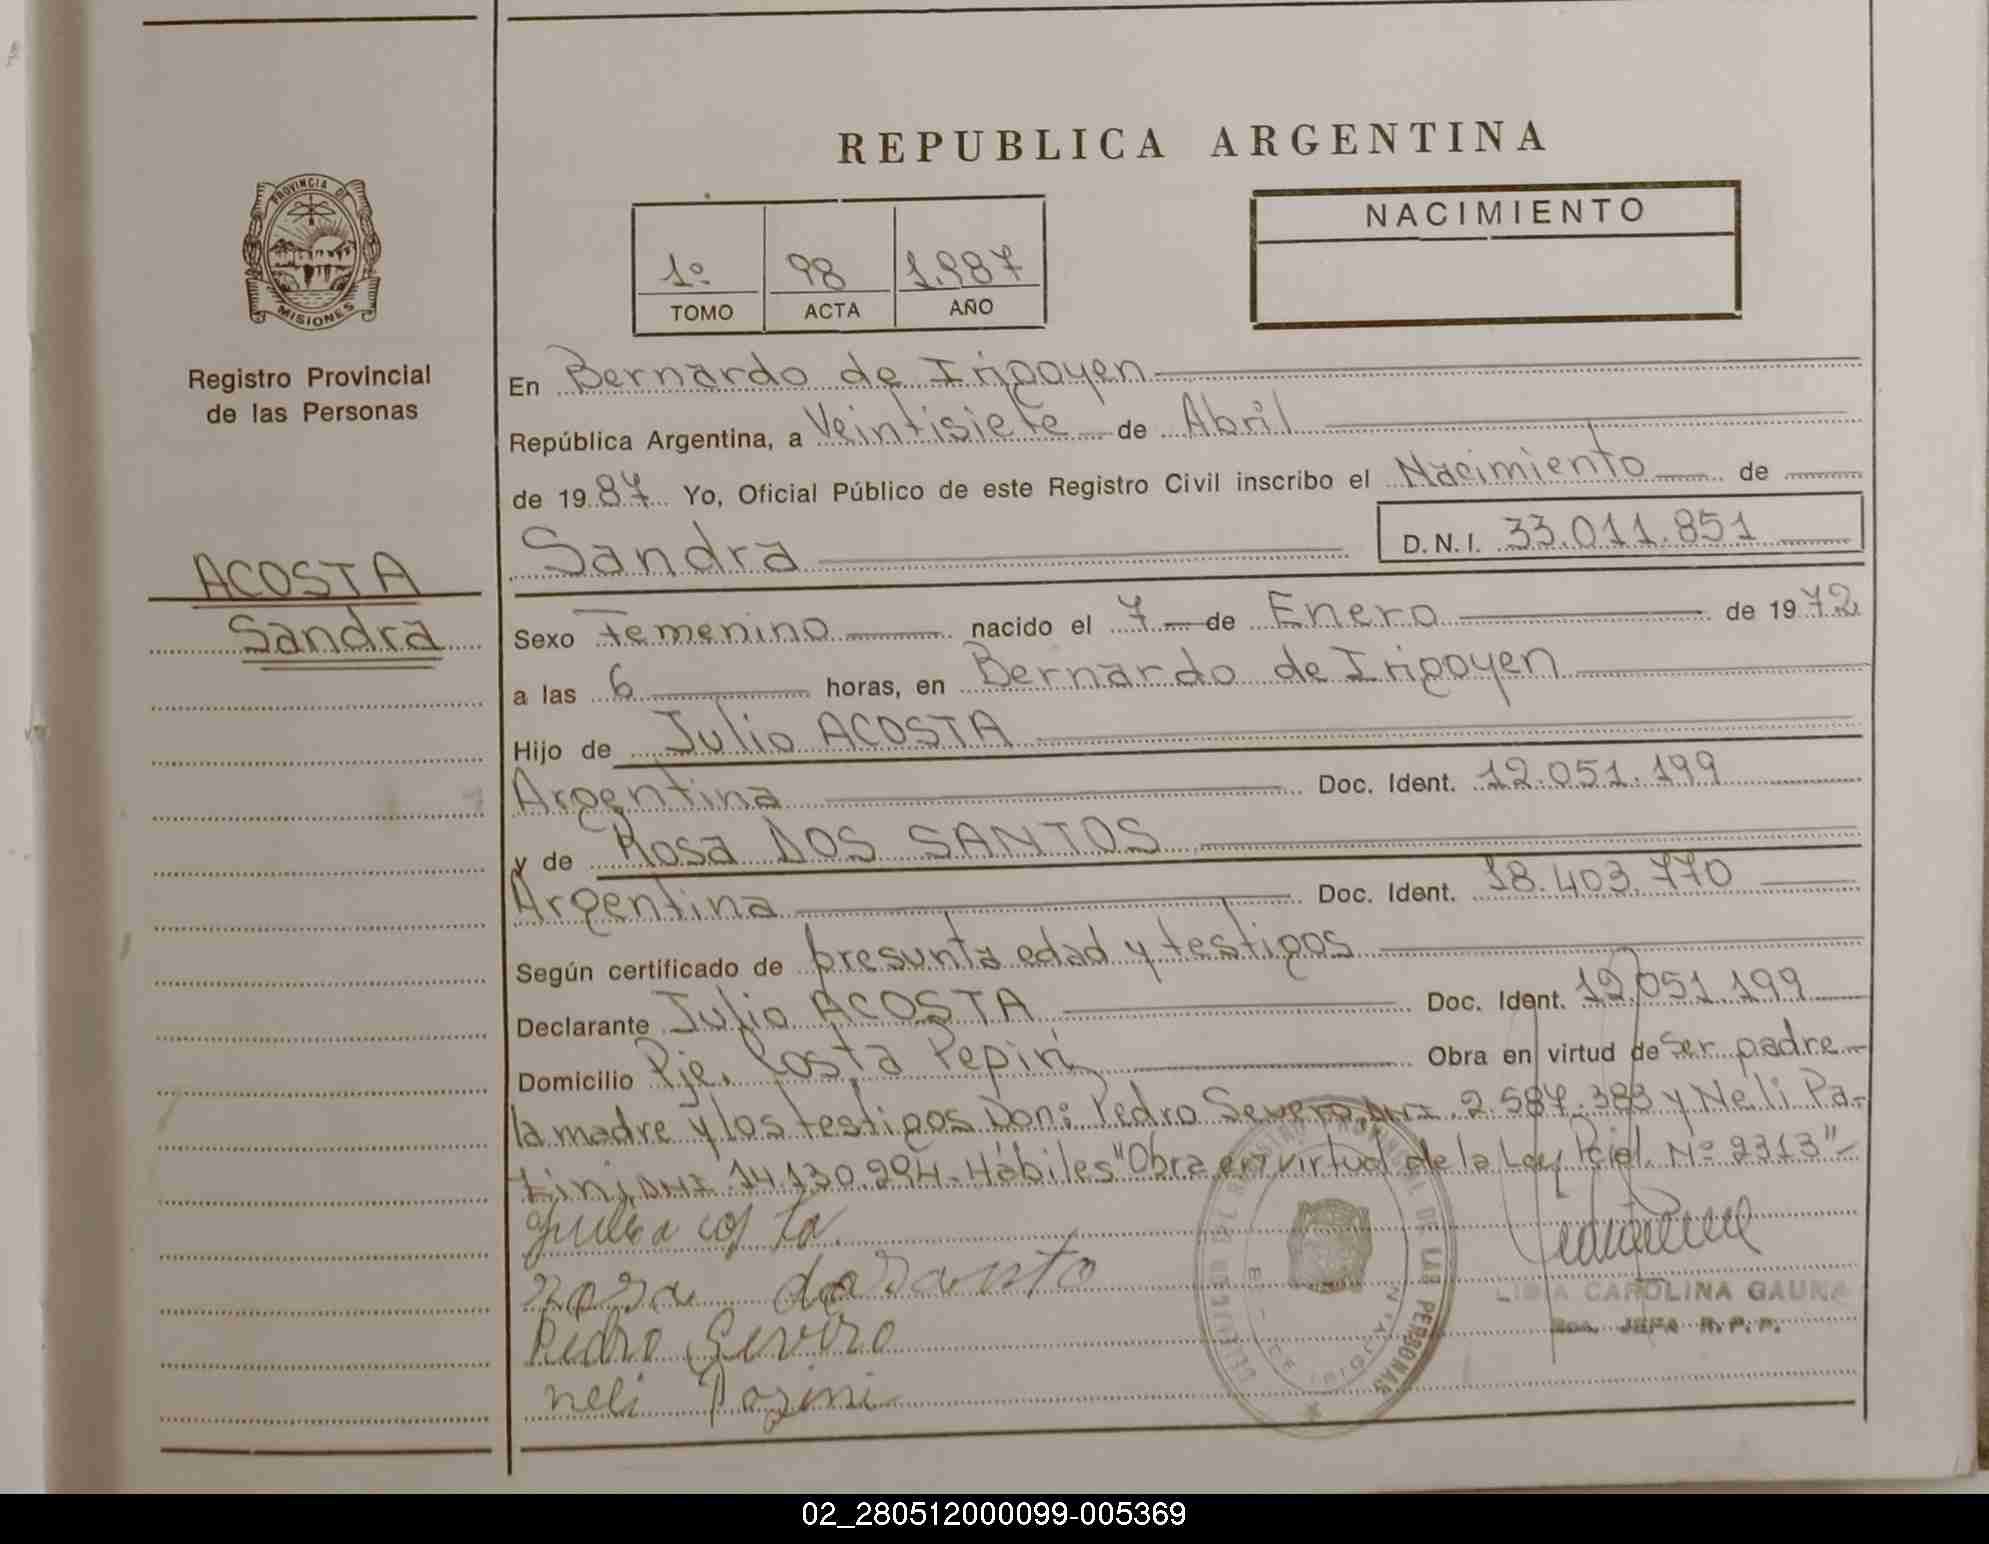 REPUBLICA ARGENTINA
PROVINCIA DE
MISIONES
Registro Provincial
de las Personas
ACOSTA
Sandra
1º 98 1.987
TOMO ACTA AÑO
NACIMIENTO
En Bernardo de Irigoyen
República Argentina, a Veintisiete de Abril
de 1987 Yo, Oficial Público de este Registro Civil inscribo el Nacimiento de
Sandra D.N.I. 33.011.851
Sexo Femenino nacido el 7 de Enero de 1972
a las 6 horas, en Bernardo de Irigoyen
Hijo de Julio ACOSTA
Argentina Doc. Ident. 12.051.199
y de Rosa DOS SANTOS
Argentina Doc. Ident. 18.403.770
Según certificado de presunta edad y testigos
Declarante Julio ACOSTA Doc. Ident. 12.051.199
Domicilio Pje. Costa Pepirí Obra en virtud de Ser padre
la madre y los testigos Don: Pedro Severo DNI. 2.587.383 y Neli Pa-
zini DNI. 14.130.294. Hábiles "Obra en virtud de la Ley Pcial. Nº 2313"
rosa dosanto
Pedro Severo
neli Pazini
DE LAS PERSONAS
LIDIA CAROLINA GAUNA
JEFA R.P.P.
02_280512000099-005369